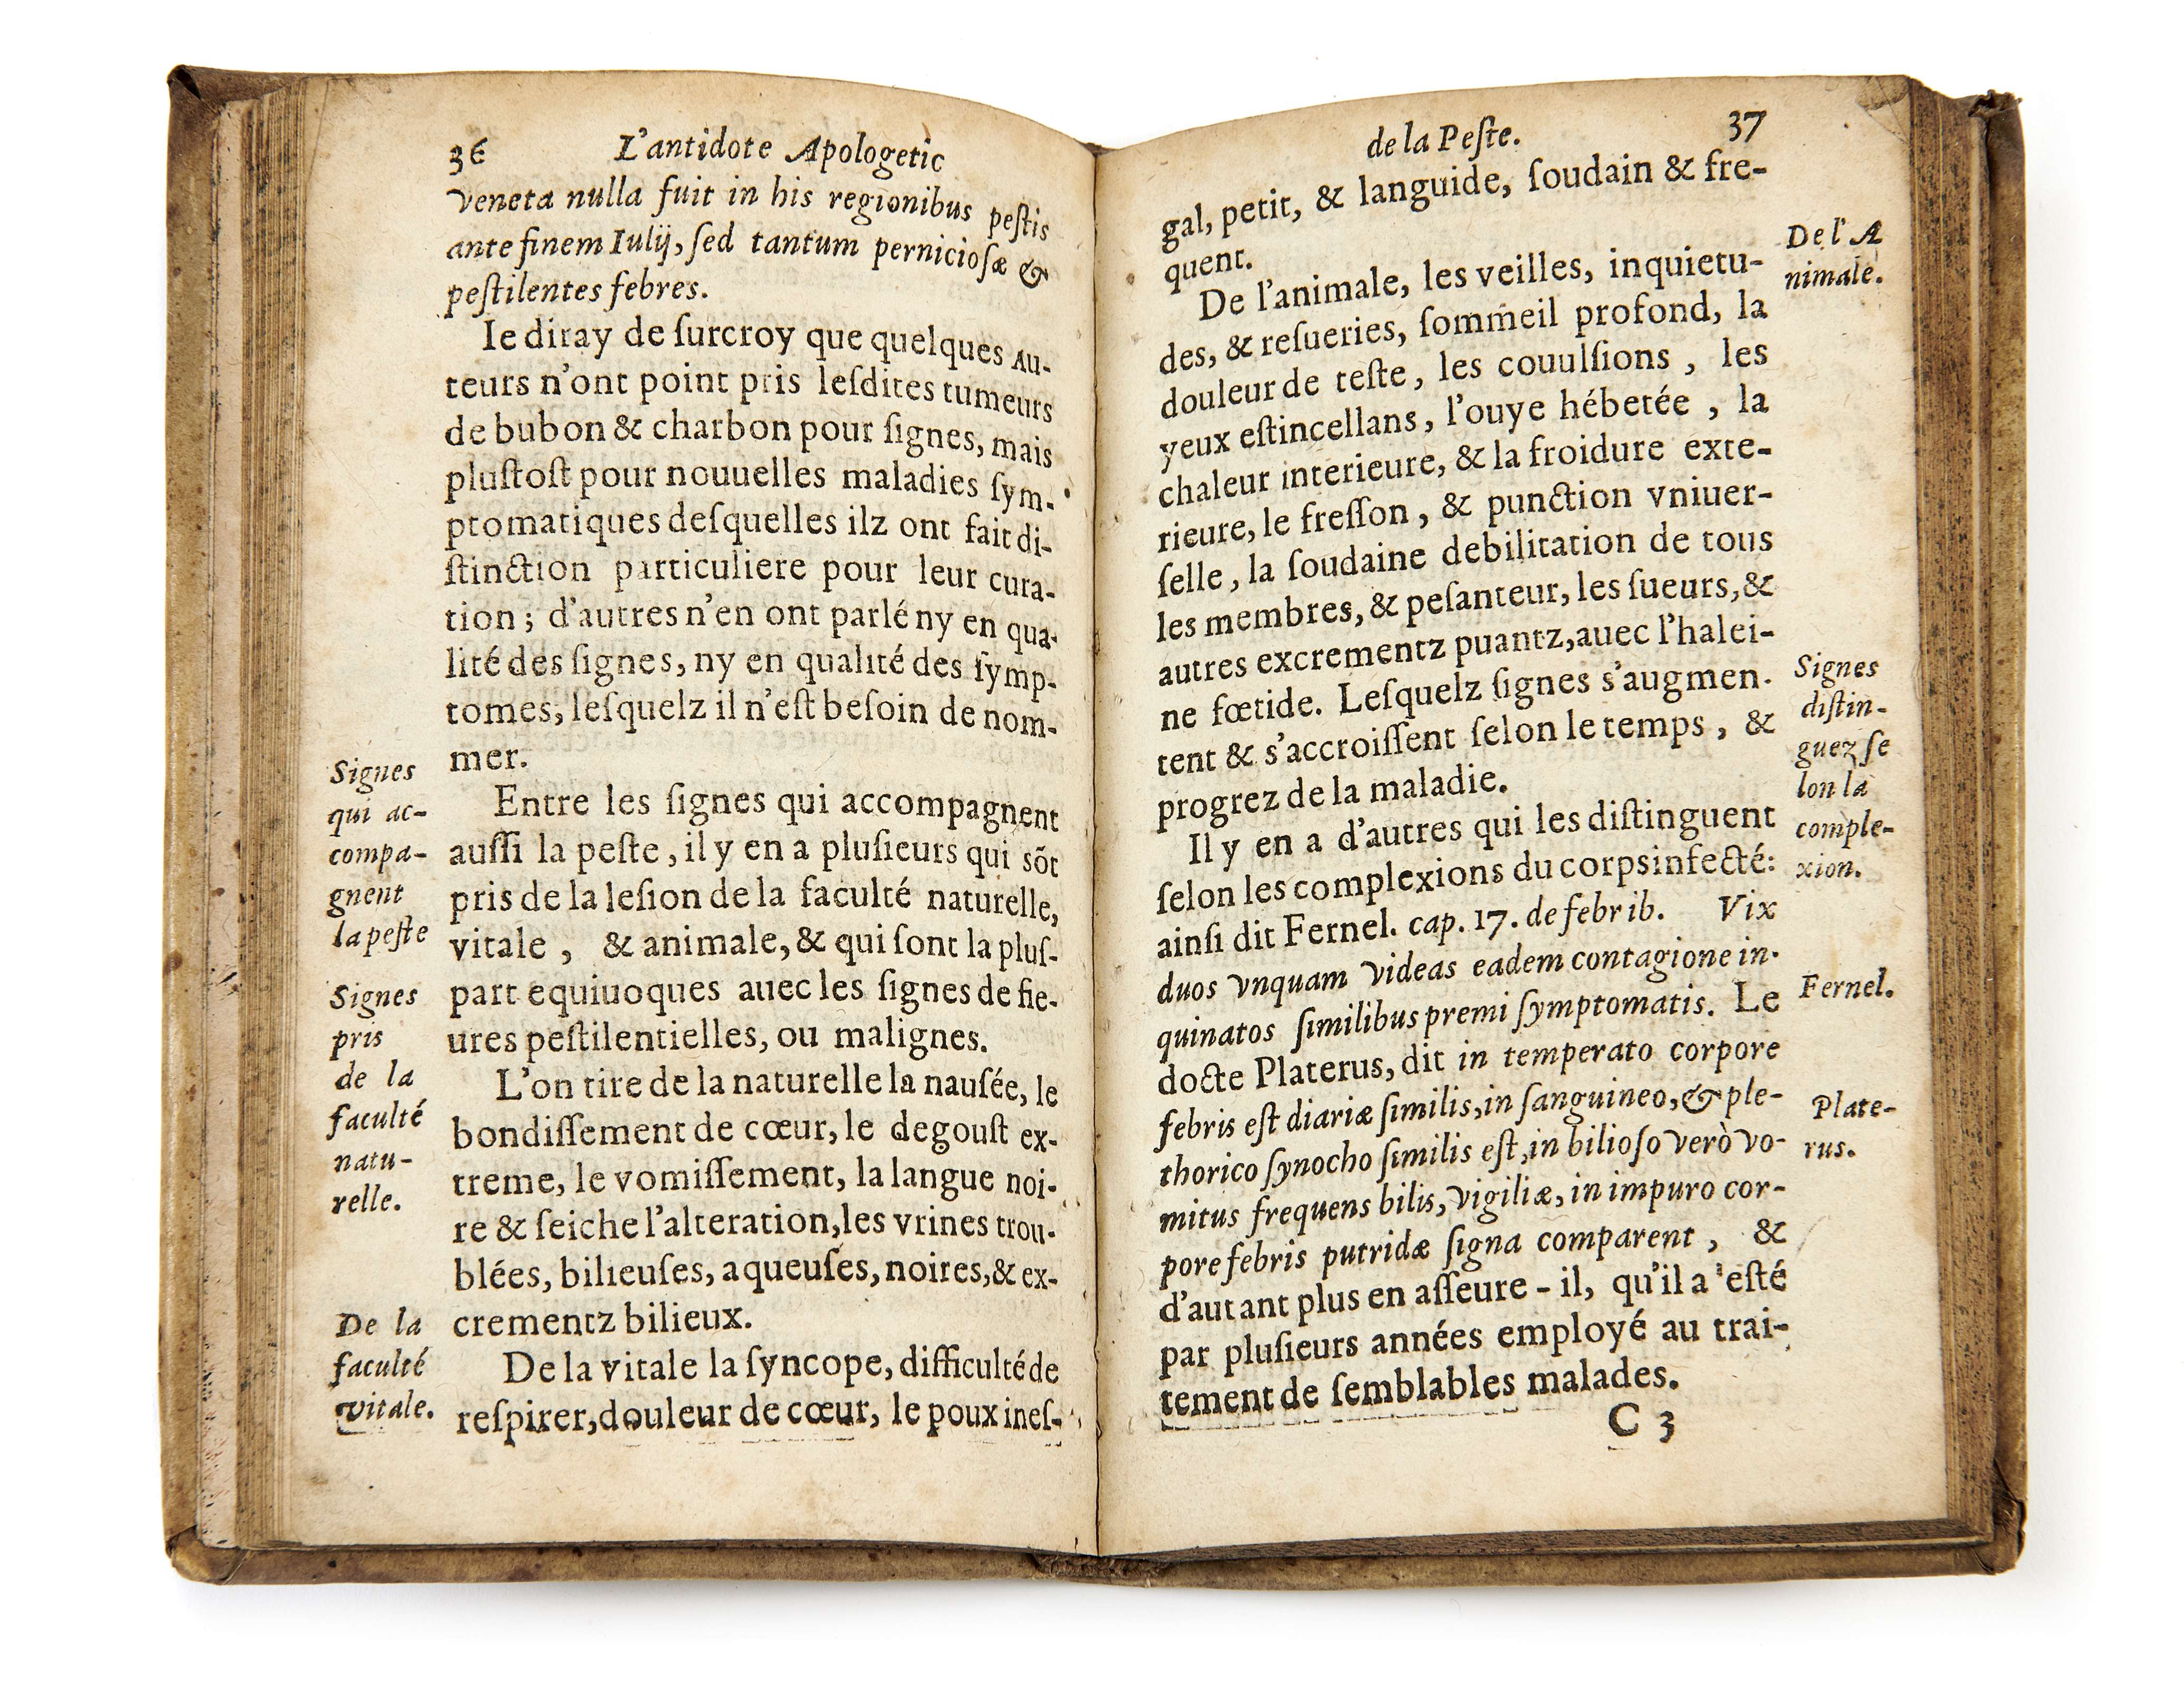 36 L'antidote Apologetic
veneta nulla fuit in his regionibus peſtis
ante finem Iulij, ſed tantum pernicioſæ &
peſtilentes febres.
Ie diray de ſurcroy que quelques Au-
teurs n'ont point pris leſdites tumeurs
de bubon & charbon pour ſignes, mais
pluſtoſt pour nouuelles maladies ſym-
ptomatiques deſquelles ilz ont fait di-
ſtinction particuliere pour leur cura-
tion; d'autres n'en ont parlé ny en qua-
lité des ſignes, ny en qualité des ſymp-
tomes, leſquelz il n'eſt beſoin de nom-
mer.
Entre les ſignes qui accompagnent
auſſi la peſte, il y en a pluſieurs qui sõt
pris de la leſion de la faculté naturelle,
vitale, & animale, & qui ſont la pluſ-
part equiuoques auec les ſignes de fie-
ures peſtilentielles, ou malignes.
L'on tire de la naturelle la nauſée, le
bondiſſement de cœur, le degouſt ex-
treme, le vomiſſement, la langue noi-
re & ſeiche l'alteration, les vrines trou-
blées, bilieuſes, aqueuſes, noires, & ex-
crementz bilieux.
De la vitale la ſyncope, difficulté de
reſpirer, douleur de cœur, le poux ineſ-
Signes
qui ac-
compa-
gnent
la peſte
Signes
pris
de la
faculté
natu-
relle.
De la
faculté
vitale.
de la Peſte. 37
gal, petit, & languide, ſoudain & fre-
quent.
De l'animale, les veilles, inquietu-
des, & reſueries, ſommeil profond, la
douleur de teſte, les couulſions, les
yeux eſtincellans, l'ouye hébetée, la
chaleur interieure, & la froidure exte-
rieure, le freſſon, & punction vniuer-
ſelle, la ſoudaine debilitation de tous
les membres, & peſanteur, les ſueurs, &
autres excrementz puantz, auec l'halei-
ne fœtide. Leſquelz ſignes s'augmen-
tent & s'accroiſſent ſelon le temps, &
progrez de la maladie.
Il y en a d'autres qui les diſtinguent
ſelon les complexions du corps infecté:
ainſi dit Fernel. cap. 17. de febrib. Vix
duos vnquam videas eadem contagione in-
quinatos ſimilibus premi ſymptomatis. Le
docte Platerus, dit in temperato corpore
febris eſt diariæ ſimilis, in ſanguineo, & ple-
thorico ſynocho ſimilis eſt, in bilioſo verò vo-
mitus frequens bilis, vigiliæ, in impuro cor-
pore febris putridæ ſigna comparent, &
d'autant plus en aſſeure-il, qu'il a eſté
par pluſieurs années employé au trai-
tement de ſemblables malades.
C 3
De l'A
nimale.
Signes
diſtin-
guez ſe
lon la
comple-
xion.
Fernel.
Plate-
rus.